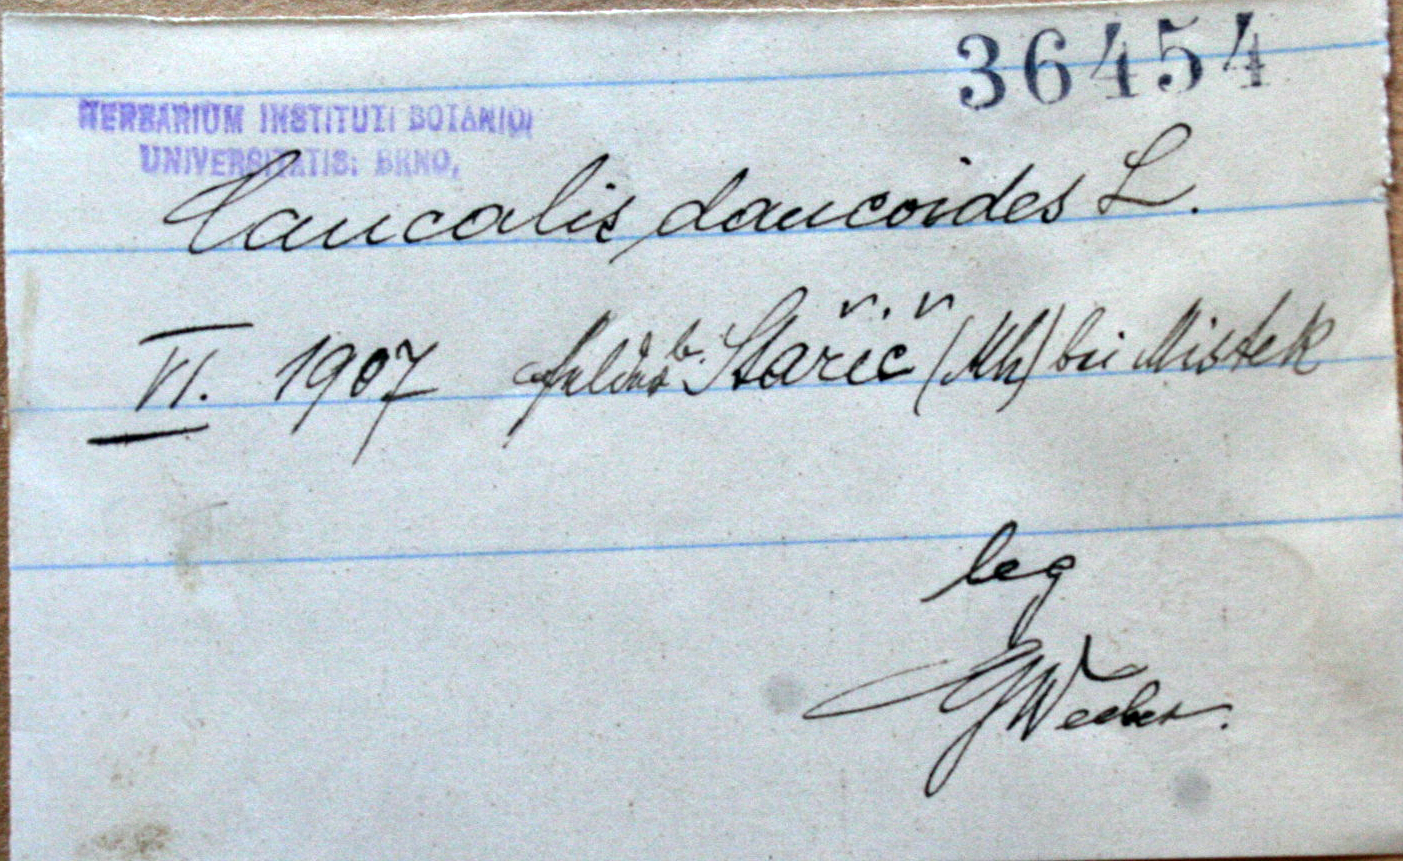 36454
HERBARIUM INSTITUTI BOTANICI
UNIVERSITATIS: BRNO,
Caucalis daucoides L.
VI. 1907 b. Stařič (Mh) bei Mistek
leg
G Weeber.